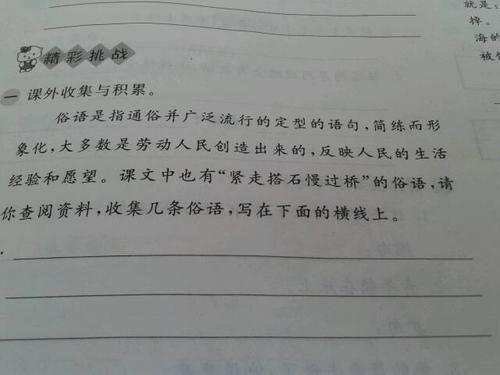 就是:
掉。
海的
被
精彩挑战
一 课外收集与积累。
俗语是指通俗并广泛流行的定型的语句,简练而形
象化,大多数是劳动人民创造出来的,反映人民的生活
经验和愿望。课文中也有“紧走搭石慢过桥”的俗语,请
你查阅资料,收集几条俗语,写在下面的横线上。